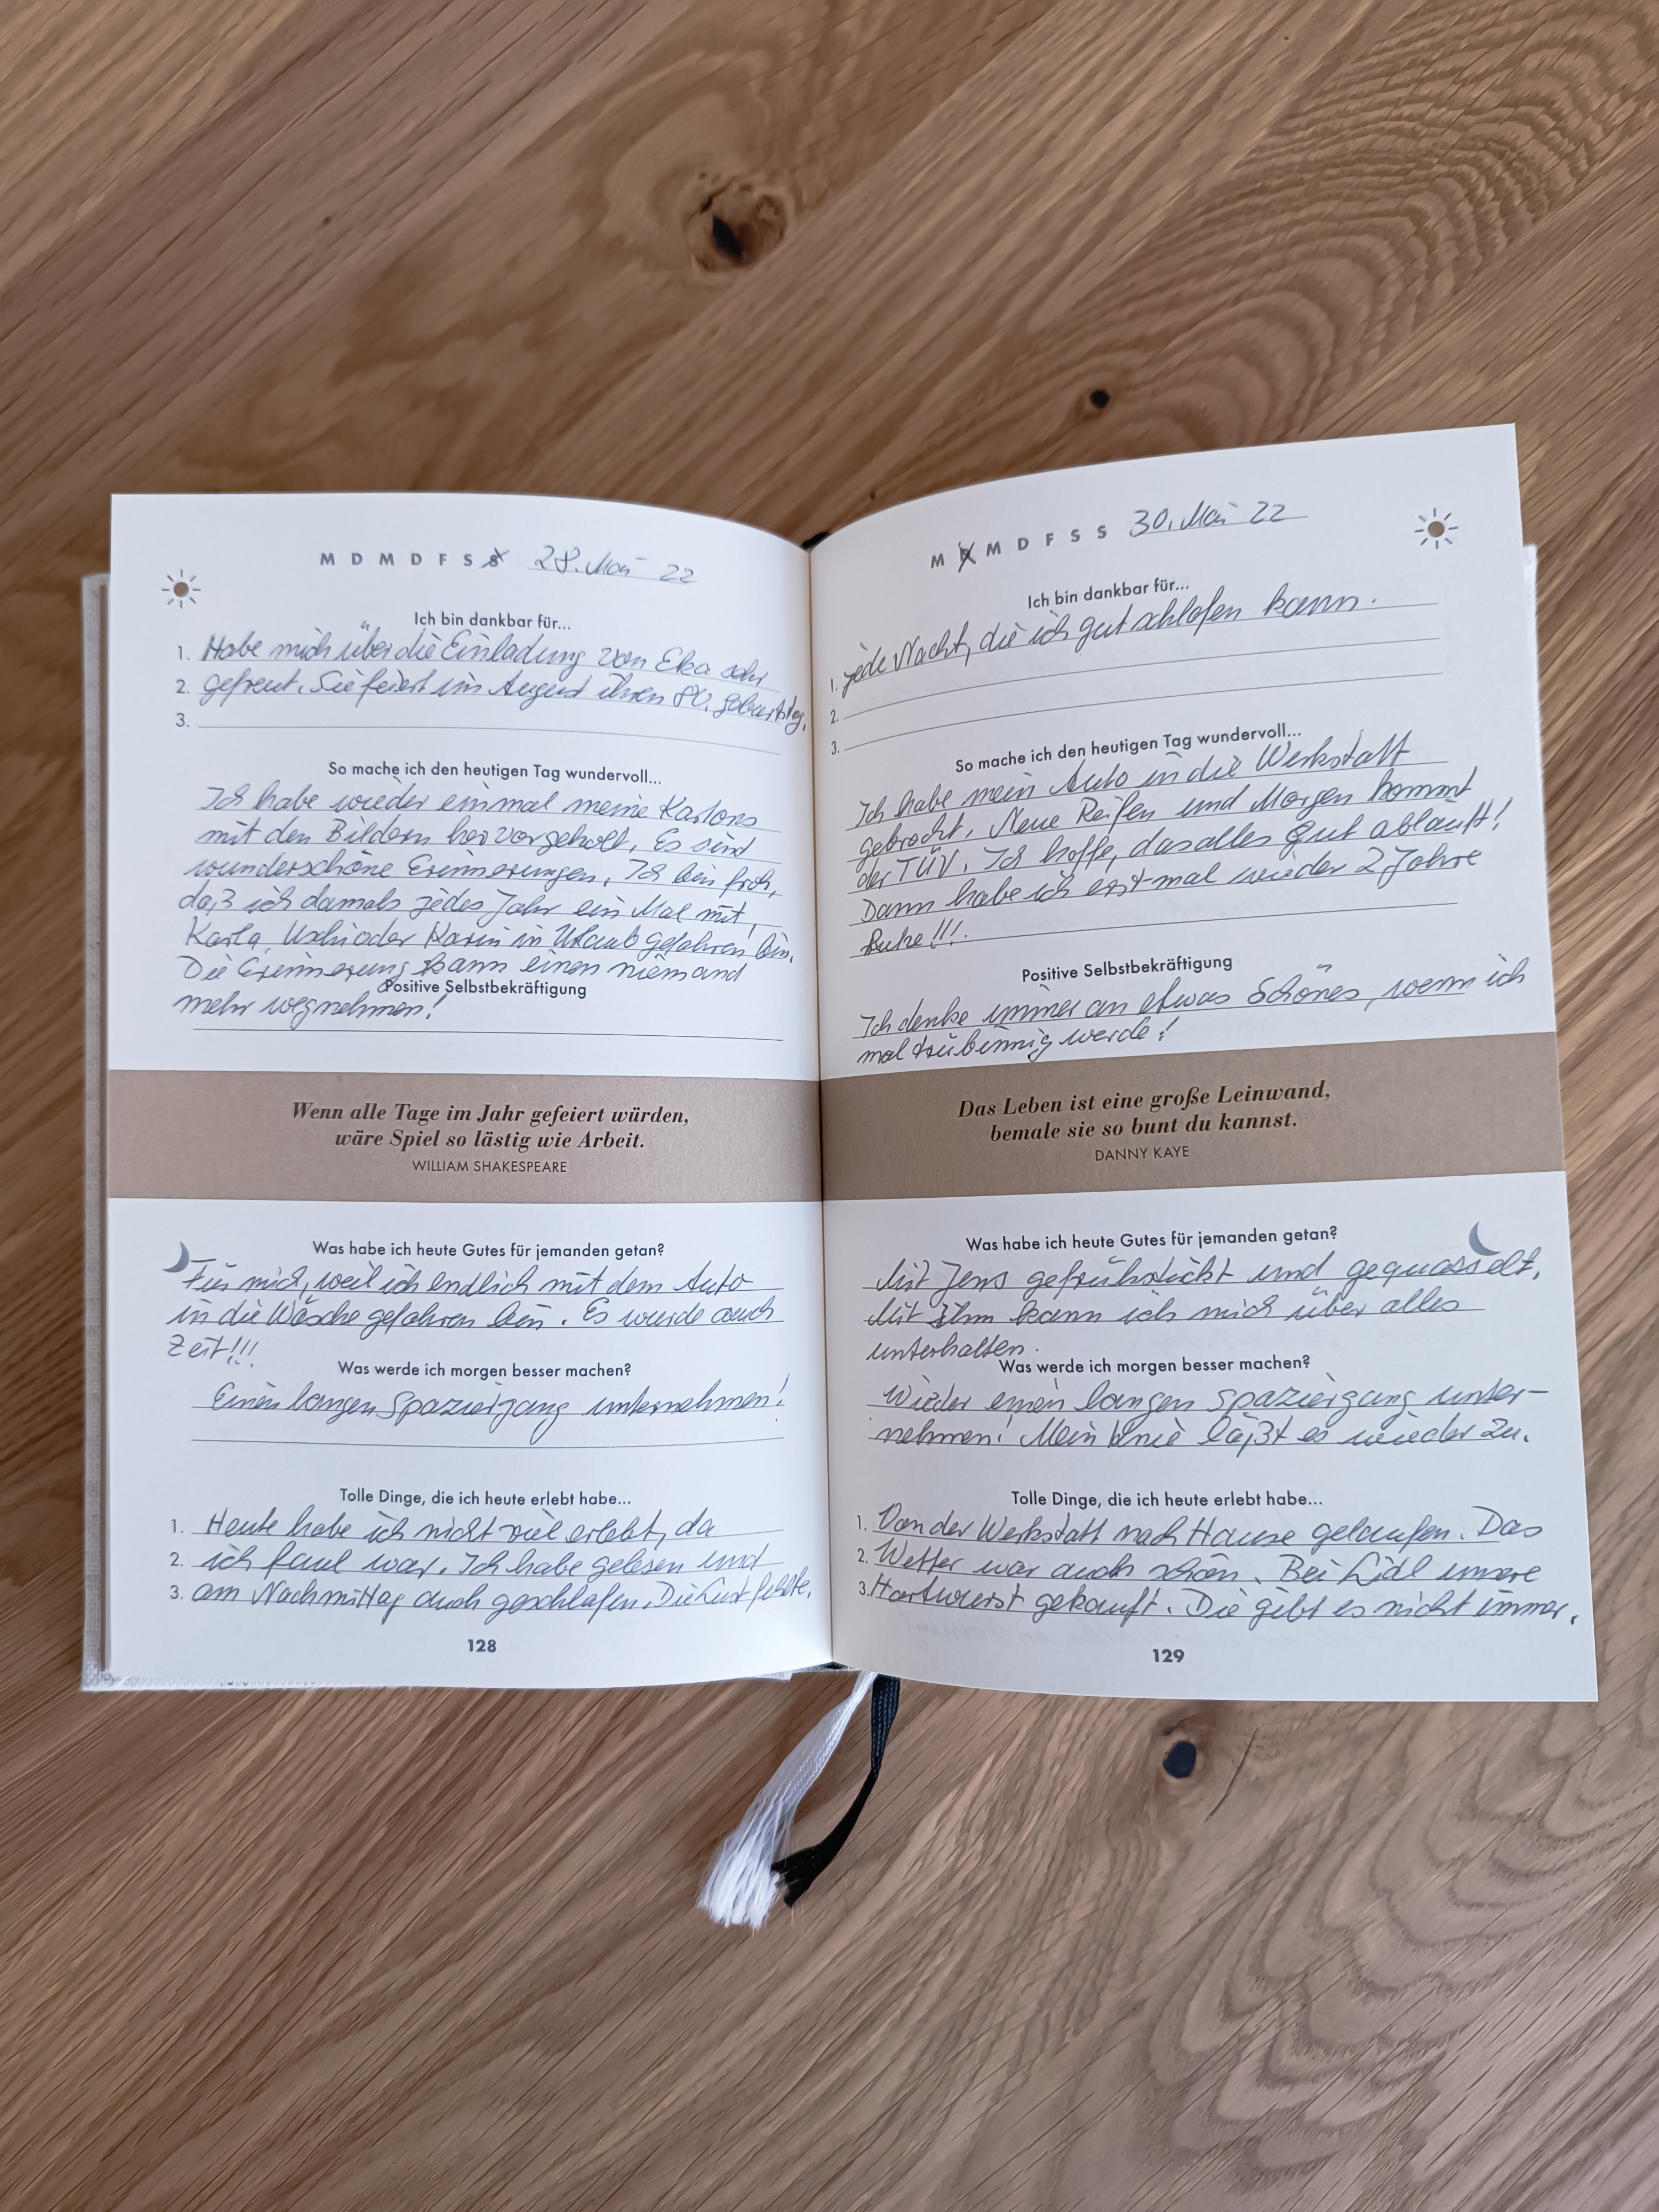 M D M D F S S 28. Mai 22
Ich bin dankbar für...
1. Habe mich über die Einladung von Eka sehr
2. gefreut. Sie feiert im August ihren 80. Geburtstag.
3.
So mache ich den heutigen Tag wundervoll...
Ich habe wieder einmal meine Kartons
mit den Bildern hervorgeholt. Es sind
wunderschöne Erinnerungen. Ich bin froh,
daß ich damals jedes Jahr ein Mal mit
Karla, Uschi oder Karin in Urlaub gefahren bin.
Die Erinnerung kann einen niemand
Positive Selbstbekräftigung
mehr wegnehmen!
Wenn alle Tage im Jahr gefeiert würden,
wäre Spiel so lästig wie Arbeit.
WILLIAM SHAKESPEARE
Was habe ich heute Gutes für jemanden getan?
Für mich, weil ich endlich mit dem Auto
in die Wäsche gefahren bin. Es wurde auch
Zeit!!!
Was werde ich morgen besser machen?
Einen langen Spaziergang unternehmen!
Tolle Dinge, die ich heute erlebt habe...
1. Heute habe ich nicht viel erlebt, da
2. ich faul war. Ich habe gelesen und
3. am Nachmittag auch geschlafen. Die Lust fehlte.
128
M D M D F S S 30. Mai 22
Ich bin dankbar für...
1. jede Nacht, die ich gut schlafen kann.
2.
3.
So mache ich den heutigen Tag wundervoll...
Ich habe mein Auto in die Werkstatt
gebracht. Neue Reifen und Morgen kommt
der TÜV. Ich hoffe, das alles gut abläuft!
Dann habe ich erst mal wieder 2 Jahre
Ruhe!!!
Positive Selbstbekräftigung
Ich denke immer an etwas Schönes, wenn ich
mal trübsinnig werde!
Das Leben ist eine große Leinwand,
bemale sie so bunt du kannst.
DANNY KAYE
Was habe ich heute Gutes für jemanden getan?
Mit Jens gefrühstückt und gequasselt.
Mit Ihm kann ich mich über alles
unterhalten.
Was werde ich morgen besser machen?
Wieder einen langen Spaziergang unter-
nehmen! Mein Knie läßt es wieder zu.
Tolle Dinge, die ich heute erlebt habe...
1. Von der Werkstatt nach Hause gelaufen. Das
2. Wetter war auch schön. Bei Lidl unsere
3. Hartwurst gekauft. Die gibt es nicht immer.
129